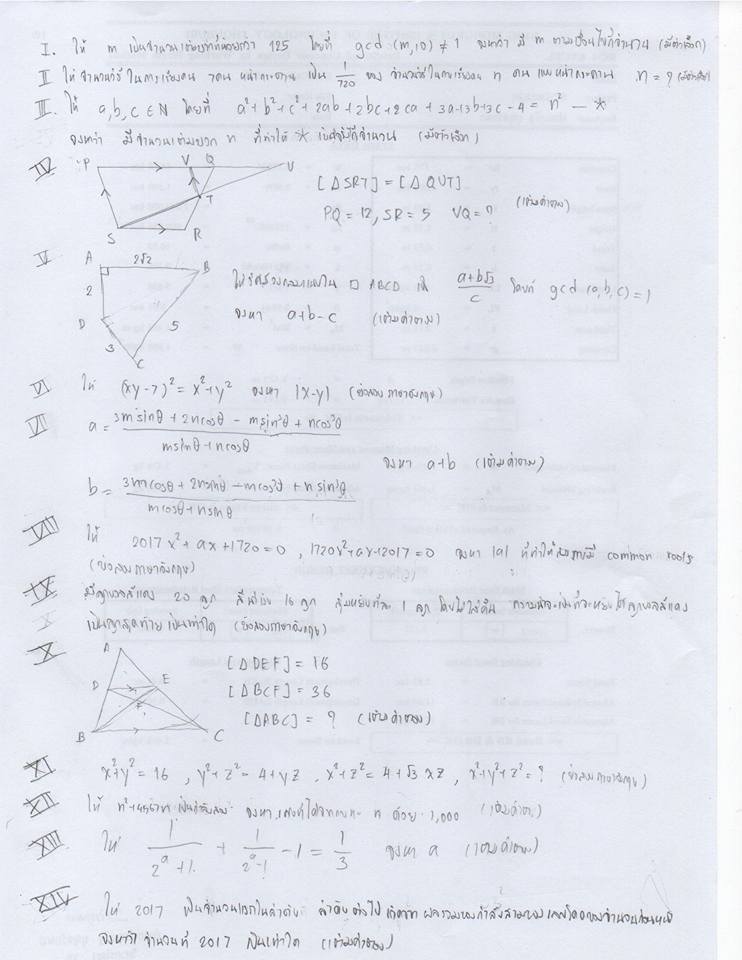 I. ให้ m เป็นจำนวนเต็มบวกที่น้อยกว่า 125 โดยที่ gcd (m,10) ≠ 1 จงหาว่า มี m ตามเงื่อนไขกี่จำนวน (มีตัวเลือก)
II ให้ จำนวนวิธี ในการเรียงคน 7คน หน้ากระดาน เป็น 1/720 ของ จำนวนวิธีในการเรียงคน n คน แบบหน้ากระดาน n = ? (มีตัวเลือก)
III. ให้ a,b,c ∈ N โดยที่ a²+b²+c²+2ab+2bc+2ca+3a+3b+3c-4 = n² — *
จงหาว่า มีจำนวนเต็มบวก n ที่ทำให้ * เป็นจริงกี่จำนวน (มีตัวเลือก)
IV P V Q U
T
S R
[△SRT] = [△QUT]
PQ = 12, SR = 5 VQ = ? (เติมคำตอบ)
V A 2√2 B
2
D 5
3
C
□ ABCD คือ (a+b√3)/c โดยที่ gcd (a,b,c) = 1
จงหา a+b-c (เติมคำตอบ)
VI ให้ (xy-7)² = x²+y² จงหา |x-y| (ข้อสอบภาษาอังกฤษ)
VII a = (3msinθ + 2ncosθ - msin³θ + ncos³θ)/(msinθ+ncosθ)
จงหา a+b (เติมคำตอบ)
b = (3mcosθ + 2nsinθ - mcos³θ + nsin³θ)/(mcosθ+nsinθ)
VIII ให้ 2017x²+ax+1720=0 , 1720x²+ax+2017=0 จงหา |a| ที่ทำให้สมการมี common roots
(ข้อสอบภาษาอังกฤษ)
IX มีลูกบอลสีแดง 20 ลูก สีน้ำเงิน 16 ลูก สุ่มหยิบทีละ 1 ลูก โดยไม่ใส่คืน ความน่าจะเป็นที่จะหยิบได้ลูกบอลสีแดง
เป็นลูกสุดท้าย เป็นเท่าใด (ข้อสอบภาษาอังกฤษ)
X A
D E
F
B C
[△DEF] = 16
[△BCF] = 36
[△ABC] = ? (เติมคำตอบ)
XI x²+y² = 16 , y²+z² = 4+yz , x²+z² = 4+√3 xz , x²+y²+z² = ? (ข้อสอบภาษาอังกฤษ)
XII ให้ จงหา n ด้วย 1,000 (เติมคำตอบ)
XIII ให้ 1/(2ᵃ+1) + 1/(2ᵃ-1) - 1 = 1/3 จงหา a (เติมคำตอบ)
XIV ให้ 2017 เป็นจำนวนแรกในลำดับ ลำดับต่อไป เกิดจาก ผลรวมของกำลังสามของเลขโดดของจำนวนก่อนหน้า
จงหาว่า จำนวนที่ 2017 เป็นเท่าใด (เติมคำตอบ)